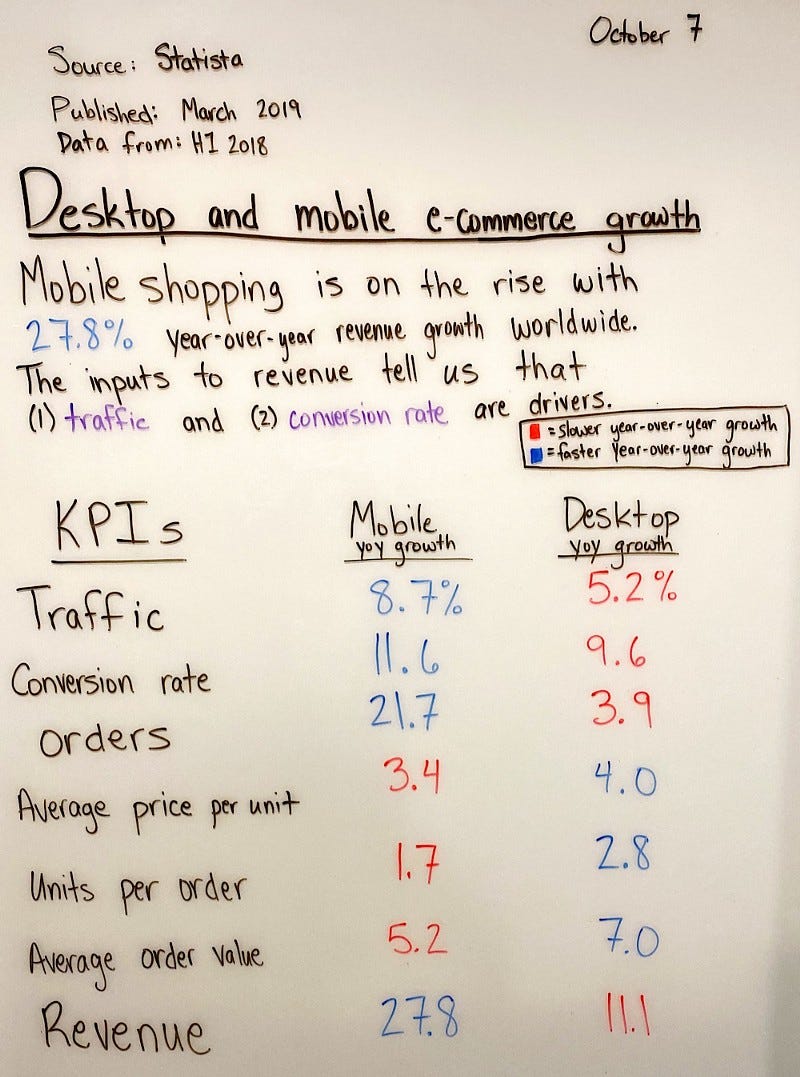 October 7
Source: Statista
Published: March 2019
Data from: H1 2018
Desktop and mobile e-commerce growth
Mobile shopping is on the rise with
27.8% year-over-year revenue growth worldwide.
The inputs to revenue tell us that
(1) traffic and (2) conversion rate are drivers.
= slower year-over-year growth
= faster year-over-year growth
KPIs Mobile Desktop
yoy growth yoy growth
Traffic 8.7% 5.2%
Conversion rate 11.6 9.6
Orders 21.7 3.9
Average price per unit 3.4 4.0
Units per order 1.7 2.8
Average order value 5.2 7.0
Revenue 27.8 11.1